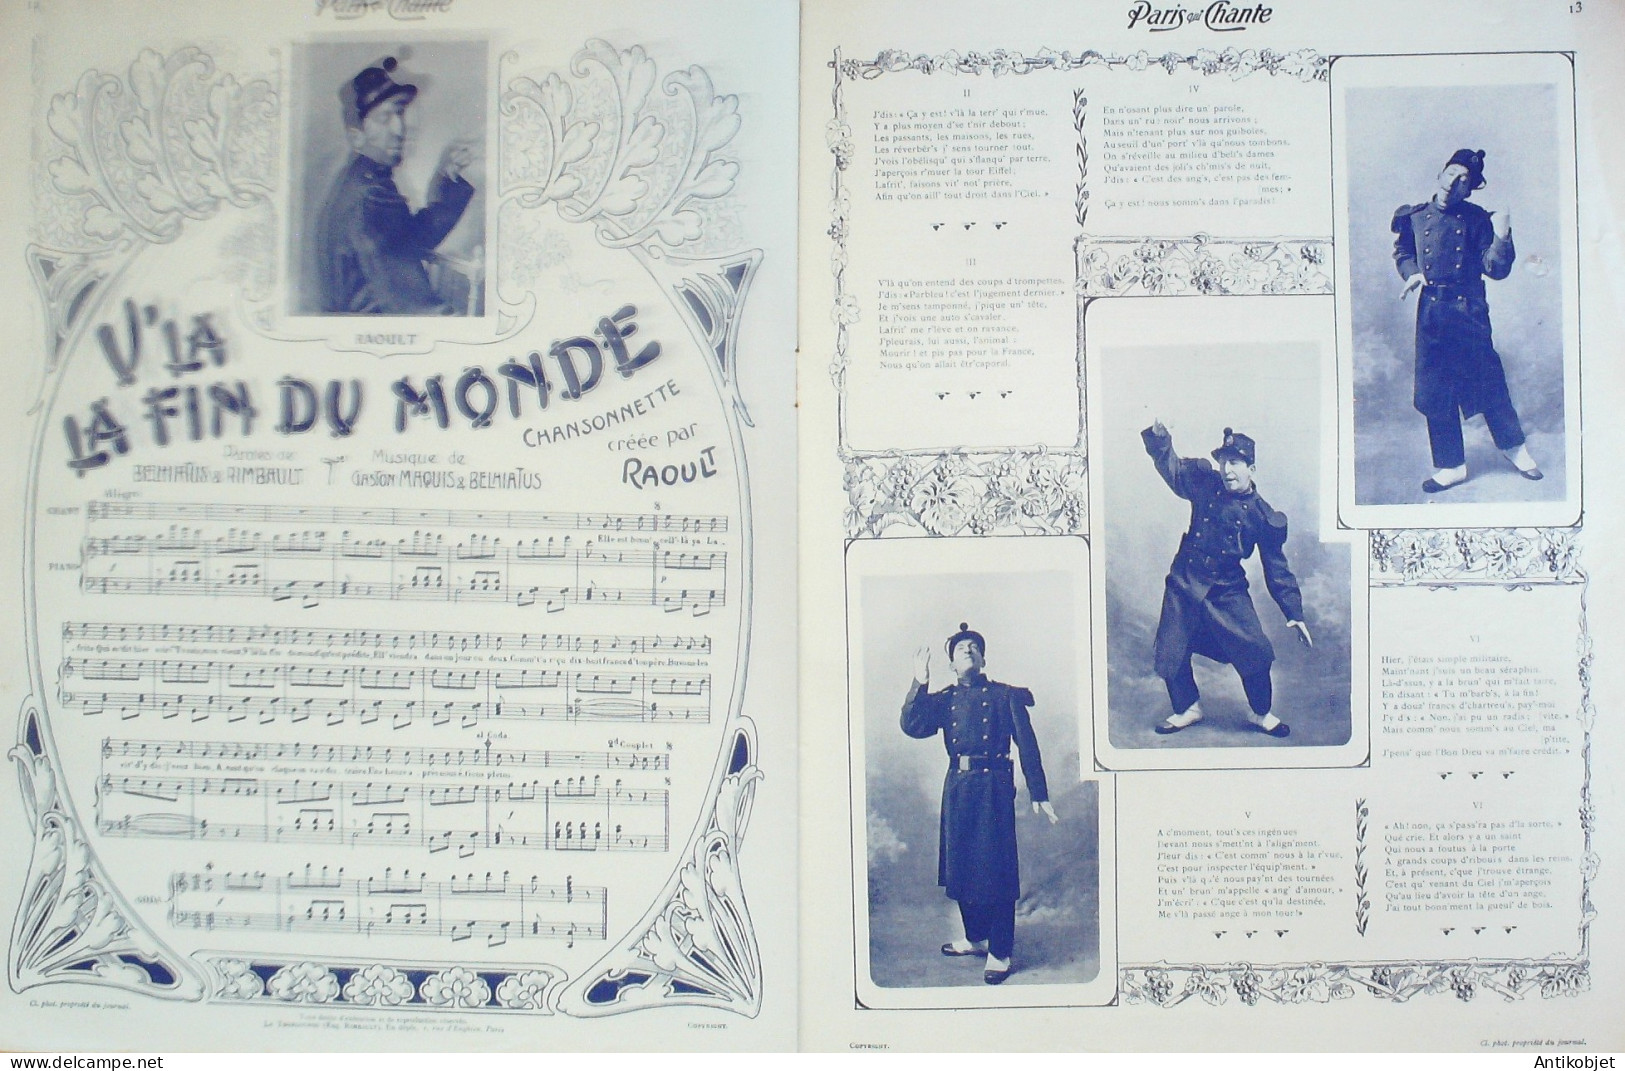 12
Paris qui Chante
RAOULT
V'LA
LA FIN DU MONDE
CHANSONNETTE
créée par
RAOULT
Paroles de
BELHIATUS & RIMBAULT
Musique de
GASTON MAQUIS & BELHIATUS
CHANT
PIANO
Elle est bonn' cell'-là ya La-
al Coda
2d Couplet
CODA
Cl. phot. propriété du journal.
Tous droits d'exécution et de reproduction réservés.
COPYRIGHT.
Paris qui Chante
13
II
J'dis: « Ça y est! v'là la terr' qui r'mue,
Y a plus moyen d'se t'nir debout;
Les passants, les maisons, les rues,
Les réverbèr's j' sens tourner tout.
J'vois l'obélisqu' qui s'flanqu' par terre,
J'aperçois r'muer la tour Eiffel;
Lafrit', faisons vit' not' prière,
Afin qu'on aill' tout droit dans l'Ciel. »
III
V'là qu'on entend des coups d'trompettes,
J'dis: « Parbleu! c'est l'jugement dernier. »
Je m'sens tamponné, j'pique un' tête,
Et j'vois une auto s'cavaler.
Lafrit' me r'lève et on ravance,
J'pleurais, lui aussi, l'animal :
Mourir! et pis pas pour la France,
Nous qu'on allait êtr' caporal.
IV
En n'osant plus dire un' parole,
Dans un' ru' noir' nous arrivons ;
Mais n'tenant plus sur nos guiboles,
Au seuil d'un' port' v'là qu'nous tombons,
On s'réveille au milieu d'bell's dames
Qu'avaient des joli's ch'mis's de nuit,
J'dis: « C'est des ang's, c'est pas des fem-
mes; »
Ça y est! nous somm's dans l'paradis!
V
A c'moment, tout's ces ingénues
Devant nous s'mett'nt à l'align'ment.
J'leur dis : « C'est comm' nous à la r'vue,
C'est pour inspecter l'équip'ment. »
Puis v'là qu'é nous pay'nt des tournées
Et un' brun' m'appelle « ang' d'amour, »
J'm'écri' : « C'que c'est qu'la destinée,
Me v'là passé ange à mon tour!»
VI
Hier, j'étais simple militaire,
Maint'nant j'suis un beau séraphin.
Là-d'ssus, y a la brun' qui m'fait taire,
En disant : « Tu m'barb's, à la fin!
Y a douz' francs d'chartreu's, pay'-moi
J'y d's : « Non, j'ai pu un radis; [vite. »
Mais comm' nous somm's au Ciel, ma
p'tite,
J'pens' que l'Bon Dieu va m'faire crédit. »
VI
« Ah! non, ça s'pass'ra pas d'la sorte, »
Qué crie. Et alors y a un saint
Qui nous a foutus à la porte
A grands coups d'ribouis dans les reins.
Et, à présent, c'que j'trouve étrange,
C'est qu' venant du Ciel j'm'aperçois
Qu'au lieu d'avoir la tête d'un ange,
J'ai tout bonn'ment la gueul' de bois.
COPYRIGHT.
Cl. phot. propriété du journal.
Antikobjet